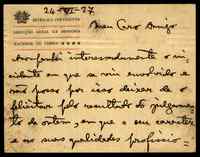 24-VI-27
REPUBLICA PORTUGUESA
DIRECÇÃO GERAL DE
Meu Caro Amigo
Acompanhei interessadamente o in-
cidente em que se viu envolvido e
não posso por isso deixar de o
felicitar pelo resultado do julgamen-
to de ontem, em que o seu caracter
e as suas qualidades profissio-